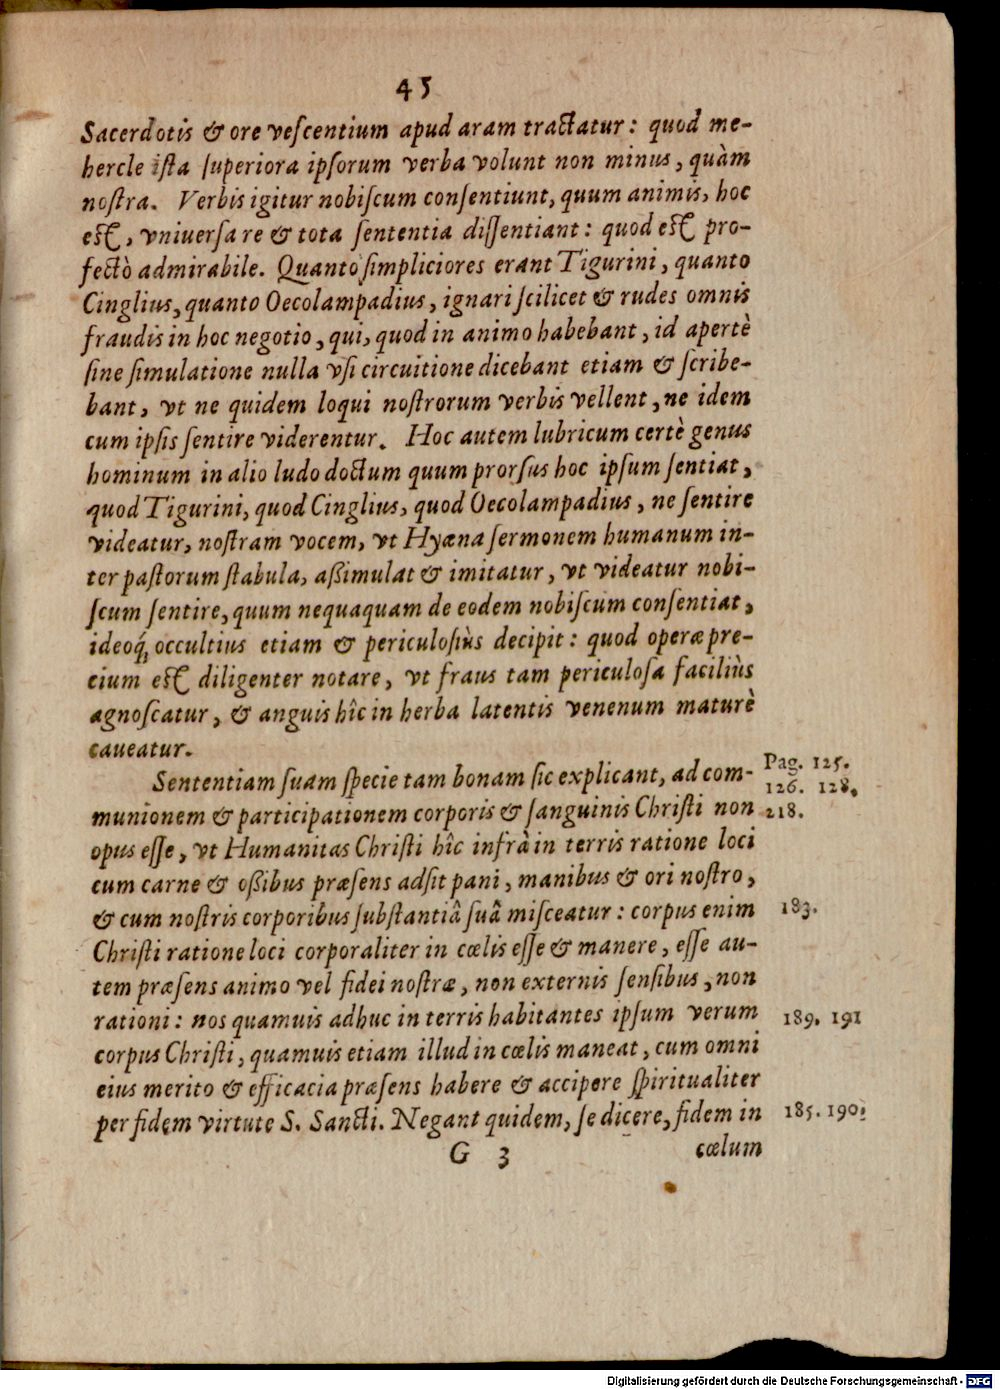 45
Sacerdotis & ore veſcentium apud aram tractatur: quod me-
hercle iſta ſuperiora ipſorum verba volunt non minus, quàm
noſtra. Verbis igitur nobiſcum conſentiunt, quum animis, hoc
eſt, vniuerſa re & tota ſententia diſſentiant: quod eſt pro-
fectò admirabile. Quanto ſimpliciores erant Tigurini, quanto
Cinglius, quanto Oecolampadius, ignari ſcilicet & rudes omnis
fraudis in hoc negotio, qui, quod in animo habebant, id apertè
ſine ſimulatione nulla vſi circuitione dicebant etiam & ſcribe-
bant, vt ne quidem loqui noſtrorum verbis vellent, ne idem
cum ipſis ſentire viderentur. Hoc autem lubricum certè genus
hominum in alio ludo doctum quum prorſus hoc ipſum ſentiat,
quod Tigurini, quod Cinglius, quod Oecolampadius, ne ſentire
videatur, noſtram vocem, vt Hyæna ſermonem humanum in-
ter paſtorum ſtabula, aßimulat & imitatur, vt videatur nobi-
ſcum ſentire, quum nequaquam de eodem nobiſcum conſentiat,
ideoq́; occultius etiam & periculoſiùs decipit: quod operæ pre-
cium eſt diligenter notare, vt fraus tam periculoſa faciliùs
agnoſcatur, & anguis hîc in herba latentis venenum maturè
caueatur.
Sententiam ſuam ſpecie tam bonam ſic explicant, ad com- Pag. 125.
126. 128.
munionem & participationem corporis & ſanguinis Chriſti non 218.
opus eſſe, vt Humanitas Chriſti hîc infrà in terris ratione loci
cum carne & oßibus præſens adſit pani, manibus & ori noſtro,
& cum noſtris corporibus ſubſtantiâ ſuâ miſceatur: corpus enim 183.
Chriſti ratione loci corporaliter in cœlis eſſe & manere, eſſe au-
tem præſens animo vel fidei noſtræ, non externis ſenſibus, non
rationi: nos quamuis adhuc in terris habitantes ipſum verum 189. 191
corpus Chriſti, quamuis etiam illud in cœlis maneat, cum omni
eius merito & efficacia præſens habere & accipere ſpiritualiter
per fidem virtute S. Sancti. Negant quidem, ſe dicere, fidem in 185. 190.
G 3 cœlum
Digitalisierung gefördert durch die Deutsche Forschungsgemeinschaft - DFG